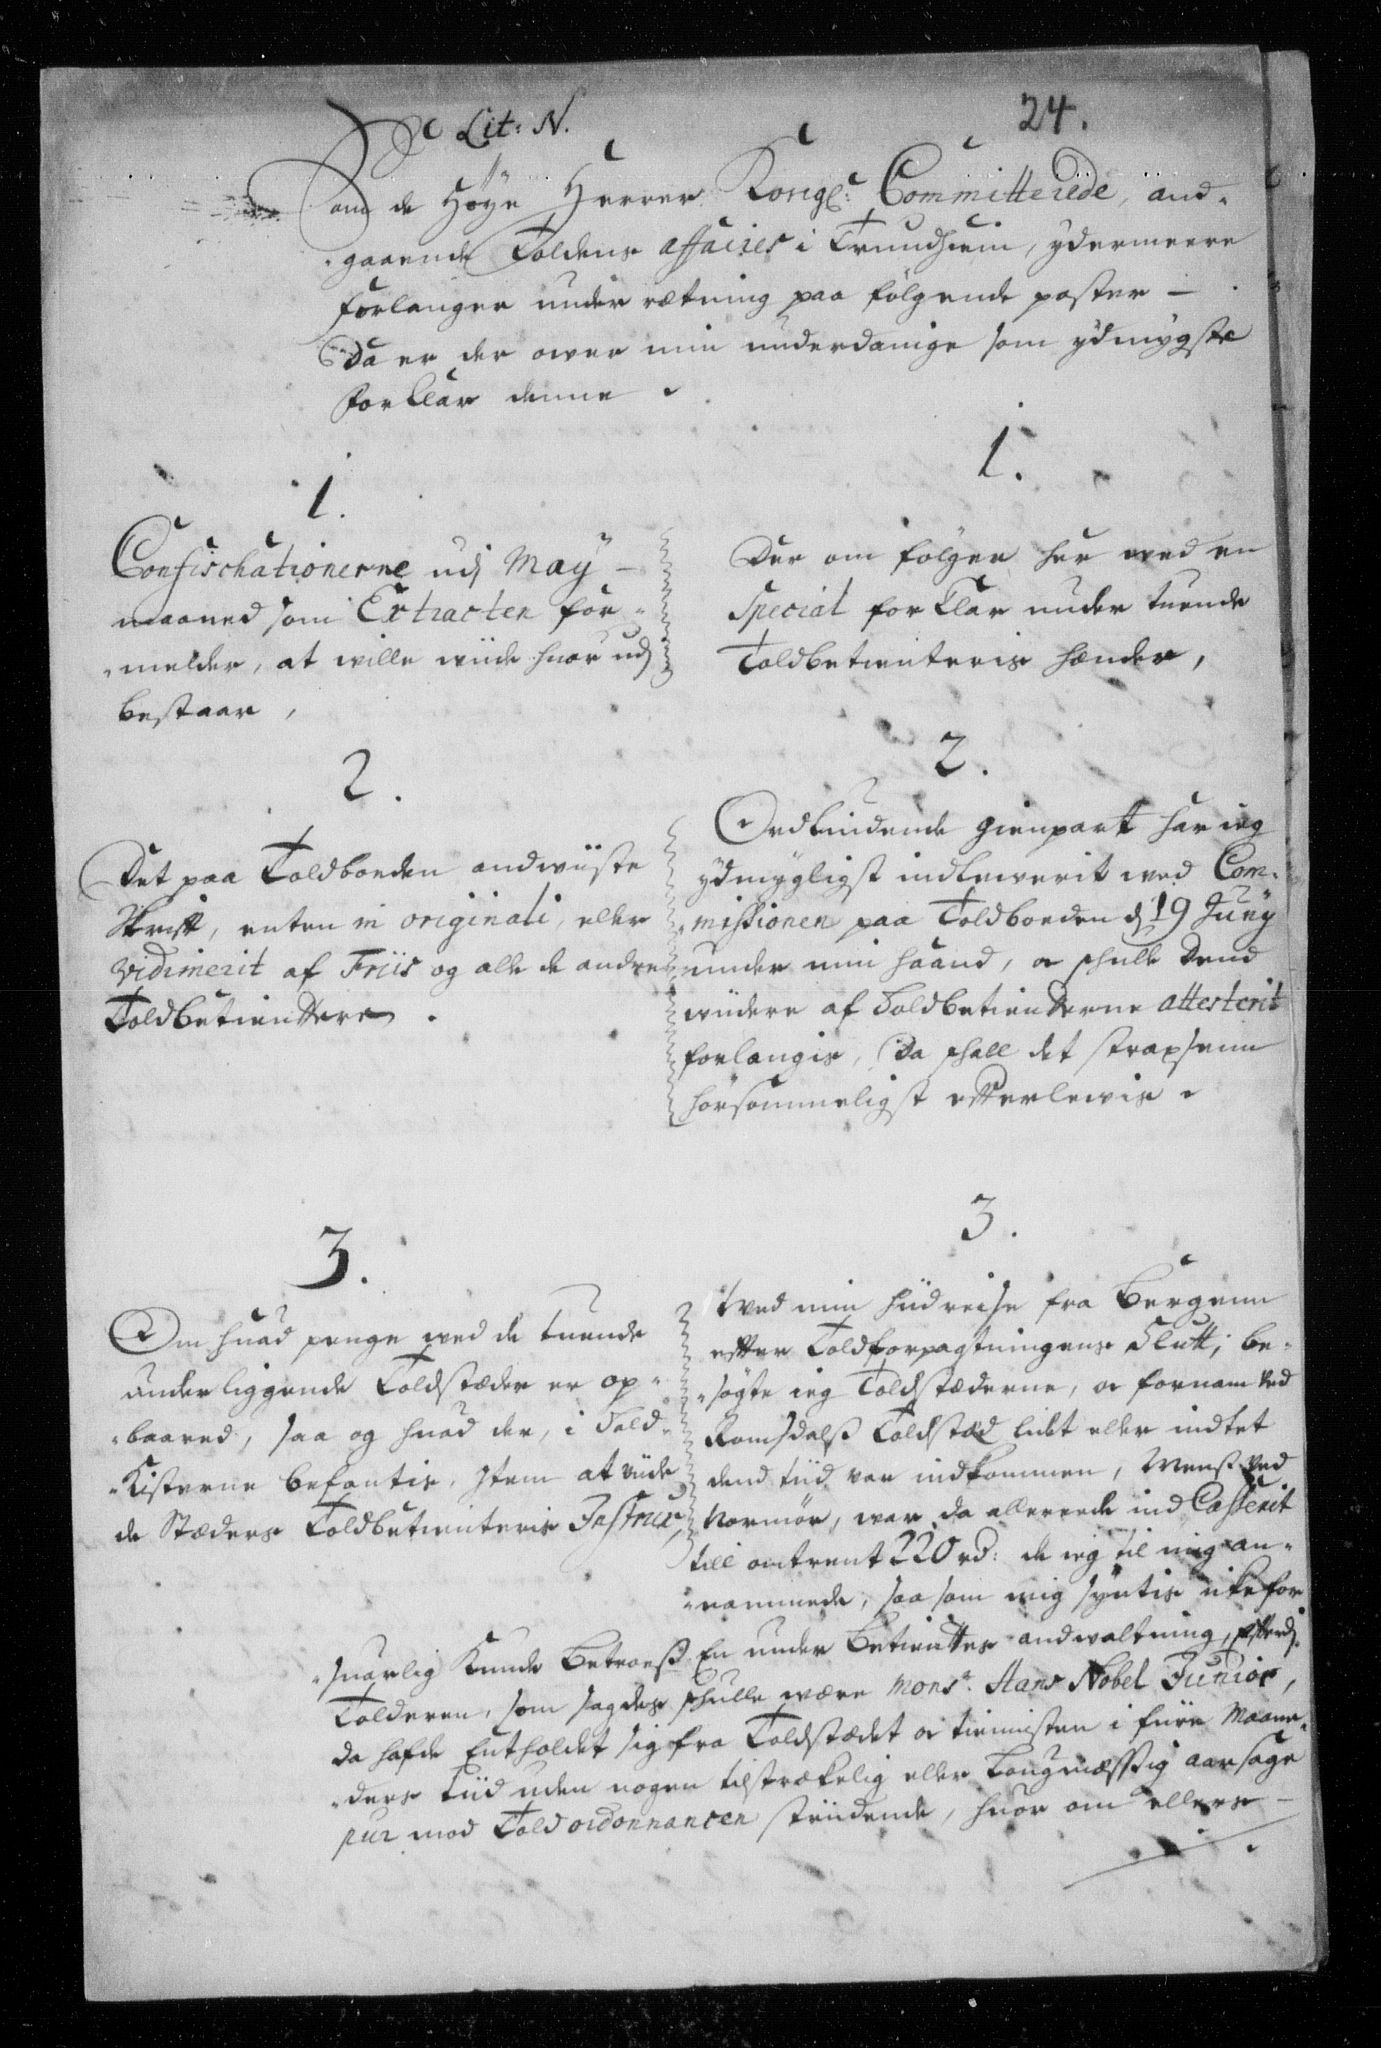 Lit: N.
24.
Som de Høye Herrer Kongl: Committerede, and-
gaaende Toldens affaires i Trundhiem, ydermeere
forlanger underretning paa følgende poster —
Da er der ower min underdanige som ydmygste
forklar denne
1.
Confischationerne udj May
maaned som Extracten for-
melder, at wille wiide huor udj
bestaar,
1.
Der om følger her wed en
Special forklar under tuende
Toldbetienteris hænder,
2.
Det paa Toldboeden andwiiste
Skrift, enten in originali eller
vidimerit af Friis og alle de andre
Toldbetienttere.
2.
Ordlindende gienpart har ieg
ydmygligst indlewerit wed Com-
missionen paa Toldboeden d 19 Junÿ
under min haand, oc schulle dend
wiidere af Toldbetientterne attesterit
forlangis, Da schall det strax henn
hørsommeligst efterlewis
3.
Om huad penge wed de tuende
underliggende Toldstæder er op-
baaret, saa og huad der, i Told-
Kisterne befantis, Item at wiide
de Stæders Toldbetienteris Instrux,
3.
Wed min hiidreise fra Bergenn
efter Toldforpagtningens Slutt, be-
søgte ieg Toldstæderne, oc fornam ved
Romsdalss Toldstæd lidet eller indtet
dend tiid var indkommen, Menss ved
Normør, war da allereede ind Casserit
till omtrent 220 rd: de ieg til mig an-
nammede, saa som mig syntis iche for
suarlig Kunde betroess En under betienttes andwaltning, efterdj
Tolderen, som sagdes schulle være Monsr. Hans Nobel Junior,
da hafde Entholdet sig fra Toldstædet oc tiennisten i fiire Maane-
ders tiid uden nogen tilstrækelig eller Lougmæssig aarsage
pur mod Toldordonnancen striidende, huor om ellers